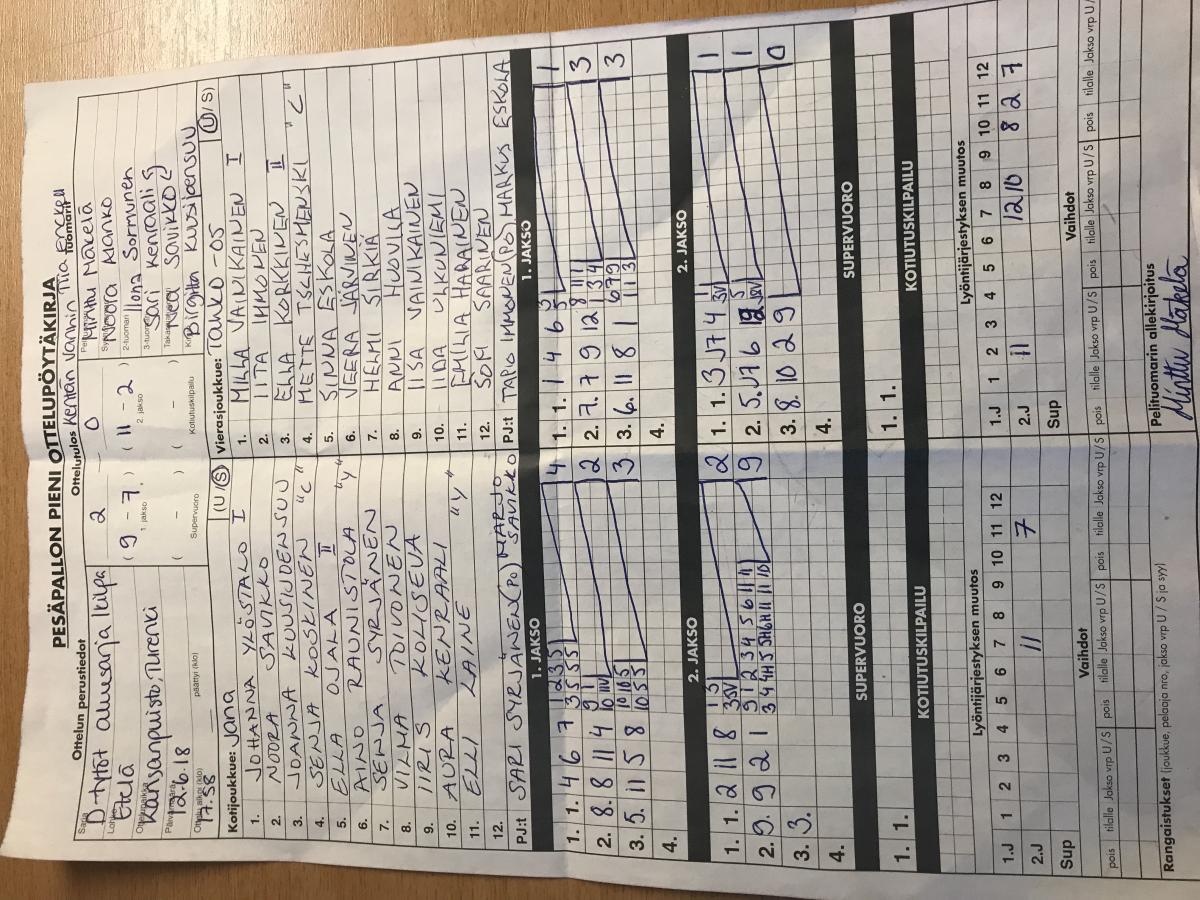 PESÄPALLON PIENI OTTELUPÖYTÄKIRJA
Ottelun perustiedot
Sarja
D-tytöt aluesarja kilpa
Lohko
Etelä
Ottelupaikka
Kansanpuisto, Turenki
Päivämäärä
12.6.18
Ottelu alkoi (klo)
17.58
päättyi (klo)
Ottelutulos
2 – 0
( 9 – 7 ) ( 11 – 2 )
1. jakso 2. jakso
( – ) ( – )
Supervuoro Kotiutuskilpailu
Tuomarit
Minttu Mäkelä
Noora Kanko
2-tuomari
Ilona Sormunen
3-tuomari
Sari Kenraali
Savikko
Kirjuri
Birgitta Kuusijoensuu
Kotijoukkue: Jana (U/S)
1. JOHANNA YLÖSTALO I
2. NOORA SAVIKKO
3. JOANNA KUUSIUDENSUU
4. SENJA KOSKINEN "C"
5. ELLA OJALA II
6. AINO RAUNISTOLA "Y"
7. SENJA SYRJÄNEN
8. VILMA TOIVONEN
9. IIRIS KOLISEVA
10. AURA KENRAALI "Y"
11. ELLI LAINE
12.
PJ:t SARI SYRJÄNEN (PO) MARJO SAVIKKO
Vierasjoukkue: Tahko -05 (U/S)
1. MILLA VAINIKAINEN I
2. IITA IMMONEN
3. ELLA KORKKINEN II
4. METTE TSCHESMENSKI "C"
5. SINNA ESKOLA
6. VEERA JÄRVINEN
7. HELMI SIRKIÄ
8. ANNI HUOVILA
9. IISA VAINIKAINEN
10. IIDA ULKUNIEMI
11. EMILIA HARAINEN
12. SOFI SAARINEN
PJ:t TAPO IMMONEN (PO) MARKUS ESKOLA
1. JAKSO
1. 1. 4 6 7 1 2 3 5 4
3 5 5 5
2. 8. 8 11 4 9 1 2
3. 5. 11 5 8 10 10 5 3
10 5 5
4.
2. JAKSO
1. 1. 2 11 8 1 3 2
2. 9. 9 2 1 9 1 2 3 4 5 6 11 11 9
3. 3.
4.
SUPERVUORO
1. 1.
KOTIUTUSKILPAILU
1. JAKSO
1. 1. 1 4 6 3 1
5
2. 7. 7 9 12 3
1 3 4
3. 6. 11 8 1 6 7 9 3
1 1 3
4.
2. JAKSO
1. 1. 3 J7 4 1
2. 5. J7 6 12 5 1
3. 8. 10 2 9 0
4.
SUPERVUORO
1. 1.
KOTIUTUSKILPAILU
Lyöntijärjestyksen muutos
1 2 3 4 5 6 7 8 9 10 11 12
1.J
2.J 11 7
Sup
Lyöntijärjestyksen muutos
1 2 3 4 5 6 7 8 9 10 11 12
1.J 12 10 8 2 7
2.J 11
Sup
Vaihdot
pois tilalle Jakso vrp U/S pois tilalle Jakso vrp U/S pois tilalle Jakso vrp U/S
Vaihdot
pois tilalle Jakso vrp U/S pois tilalle Jakso vrp U/S pois tilalle Jakso vrp U/S
Rangaistukset (joukkue, pelaaja nro, jakso vrp U / S ja syy)
Pelituomarin allekirjoitus
Minttu Mäkelä